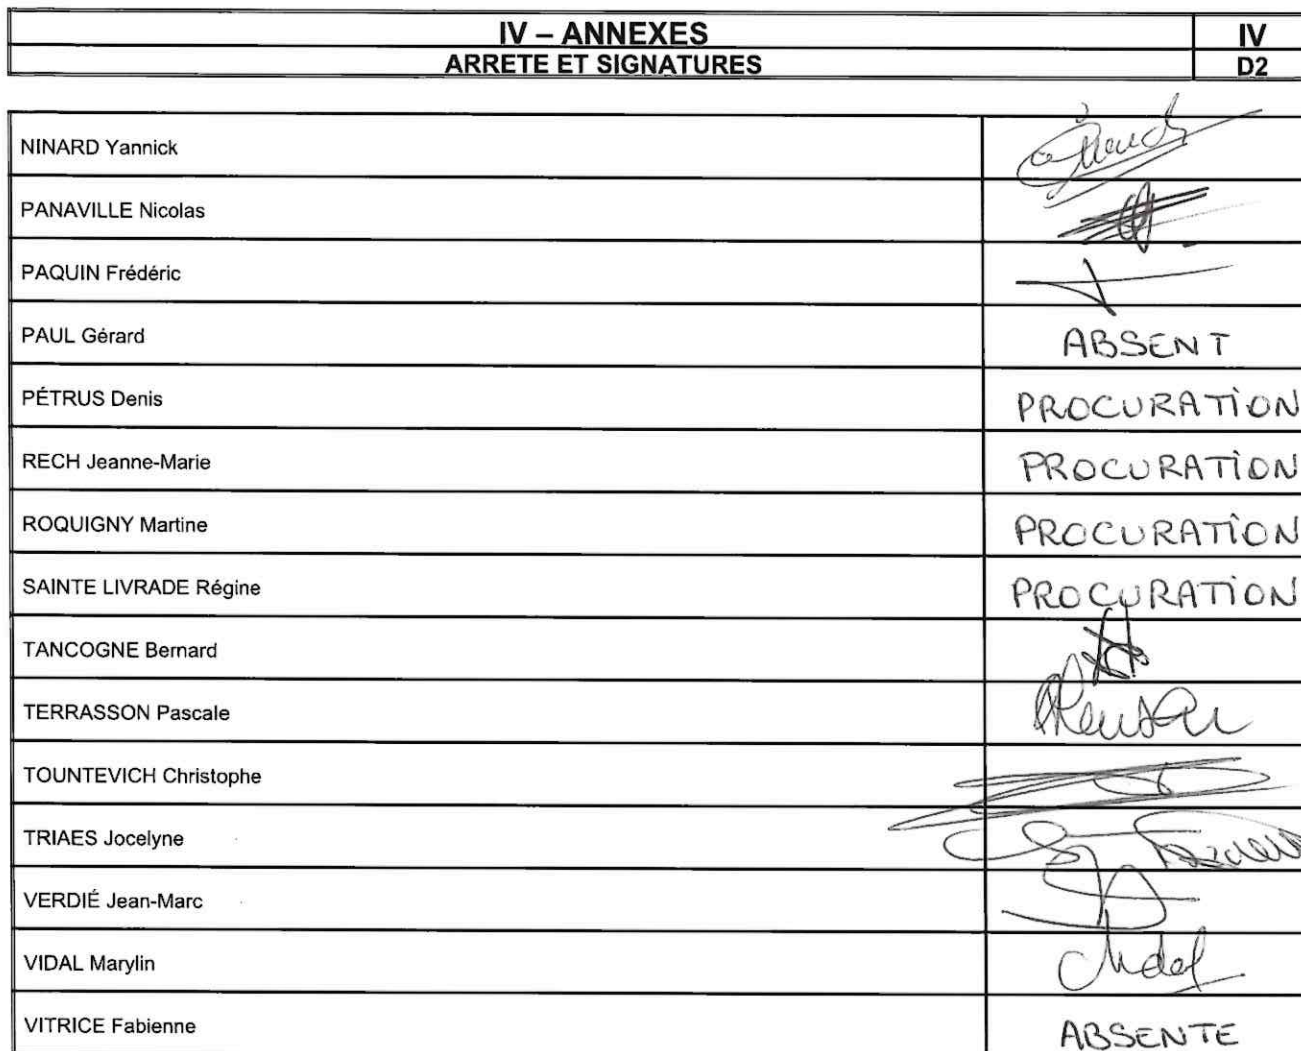 IV – ANNEXES IV
ARRETE ET SIGNATURES D2
NINARD Yannick
PANAVILLE Nicolas
PAQUIN Frédéric
PAUL Gérard ABSENT
PÉTRUS Denis PROCURATION
RECH Jeanne-Marie PROCURATION
ROQUIGNY Martine PROCURATION
SAINTE LIVRADE Régine PROCURATION
TANCOGNE Bernard
TERRASSON Pascale
TOUNTEVICH Christophe
TRIAES Jocelyne
VERDIÉ Jean-Marc
VIDAL Marylin Vidal
VITRICE Fabienne ABSENTE